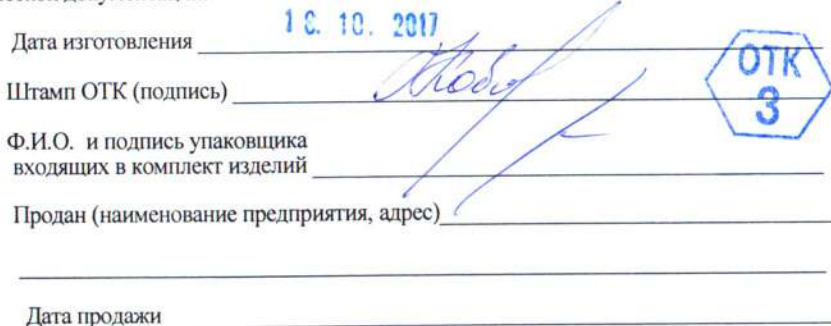 Дата изготовления 18. 10. 2017
Штамп ОТК (подпись)
ОТК
3
Ф.И.О. и подпись упаковщика
входящих в комплект изделий
Продан (наименование предприятия, адрес)
Дата продажи